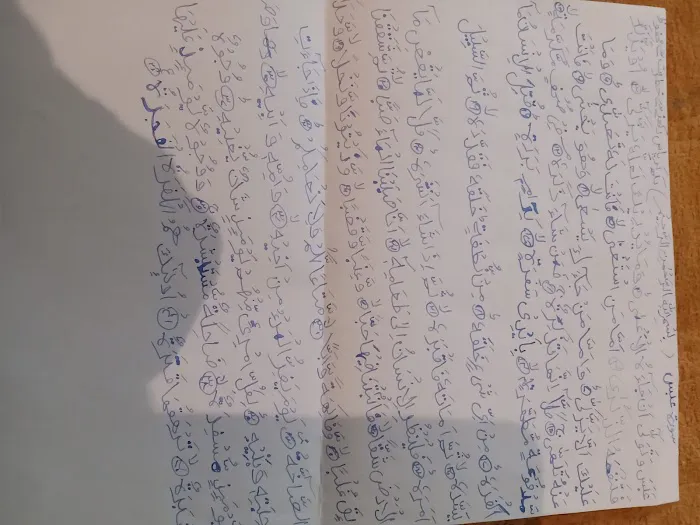 سورة عبس
عَبَسَ وَتَوَلَّىٰ أَن جَاءَهُ الْأَعْمَىٰ وَمَا يُدْرِيكَ لَعَلَّهُ يَزَّكَّىٰ أَوْ يَذَّكَّرُ
فَتَنفَعَهُ الذِّكْرَىٰ أَمَّا مَنِ اسْتَغْنَىٰ فَأَنتَ لَهُ تَصَدَّىٰ وَمَا
عَلَيْكَ أَلَّا يَزَّكَّىٰ وَأَمَّا مَن جَاءَكَ يَسْعَىٰ وَهُوَ يَخْشَىٰ فَأَنتَ
عَنْهُ تَلَهَّىٰ كَلَّا إِنَّهَا تَذْكِرَةٌ فَمَن شَاءَ ذَكَرَهُ فِي صُحُفٍ مُّكَرَّمَةٍ
مَّرْفُوعَةٍ مُّطَهَّرَةٍ بِأَيْدِي سَفَرَةٍ كِرَامٍ بَرَرَةٍ قُتِلَ الْإِنسَانُ مَا
أَكْفَرَهُ مِنْ أَيِّ شَيْءٍ خَلَقَهُ مِن نُّطْفَةٍ خَلَقَهُ فَقَدَّرَهُ ثُمَّ السَّبِيلَ
يَسَّرَهُ ثُمَّ أَمَاتَهُ فَأَقْبَرَهُ ثُمَّ إِذَا شَاءَ أَنشَرَهُ كَلَّا لَمَّا يَقْضِ مَا
أَمَرَهُ فَلْيَنظُرِ الْإِنسَانُ إِلَىٰ طَعَامِهِ أَنَّا صَبَبْنَا الْمَاءَ صَبًّا ثُمَّ شَقَقْنَا
الْأَرْضَ شَقًّا فَأَنبَتْنَا فِيهَا حَبًّا وَعِنَبًا وَقَضْبًا وَزَيْتُونًا وَنَخْلًا وَحَدَا
ئِقَ غُلْبًا وَفَاكِهَةً وَأَبًّا مَّتَاعًا لَّكُمْ وَلِأَنْعَامِكُمْ فَإِذَا جَاءَتِ
الصَّاخَّةُ يَوْمَ يَفِرُّ الْمَرْءُ مِنْ أَخِيهِ وَأُمِّهِ وَأَبِيهِ وَصَا
حِبَتِهِ وَبَنِيهِ لِكُلِّ امْرِئٍ مِّنْهُمْ يَوْمَئِذٍ شَأْنٌ يُغْنِيهِ وُجُوهٌ
يَوْمَئِذٍ مُّسْفِرَةٌ ضَاحِكَةٌ مُّسْتَبْشِرَةٌ وَوُجُوهٌ يَوْمَئِذٍ عَلَيْهَا
غَبَرَةٌ تَرْهَقُهَا قَتَرَةٌ أُولَٰئِكَ هُمُ الْكَفَرَةُ الْفَجَرَةُ